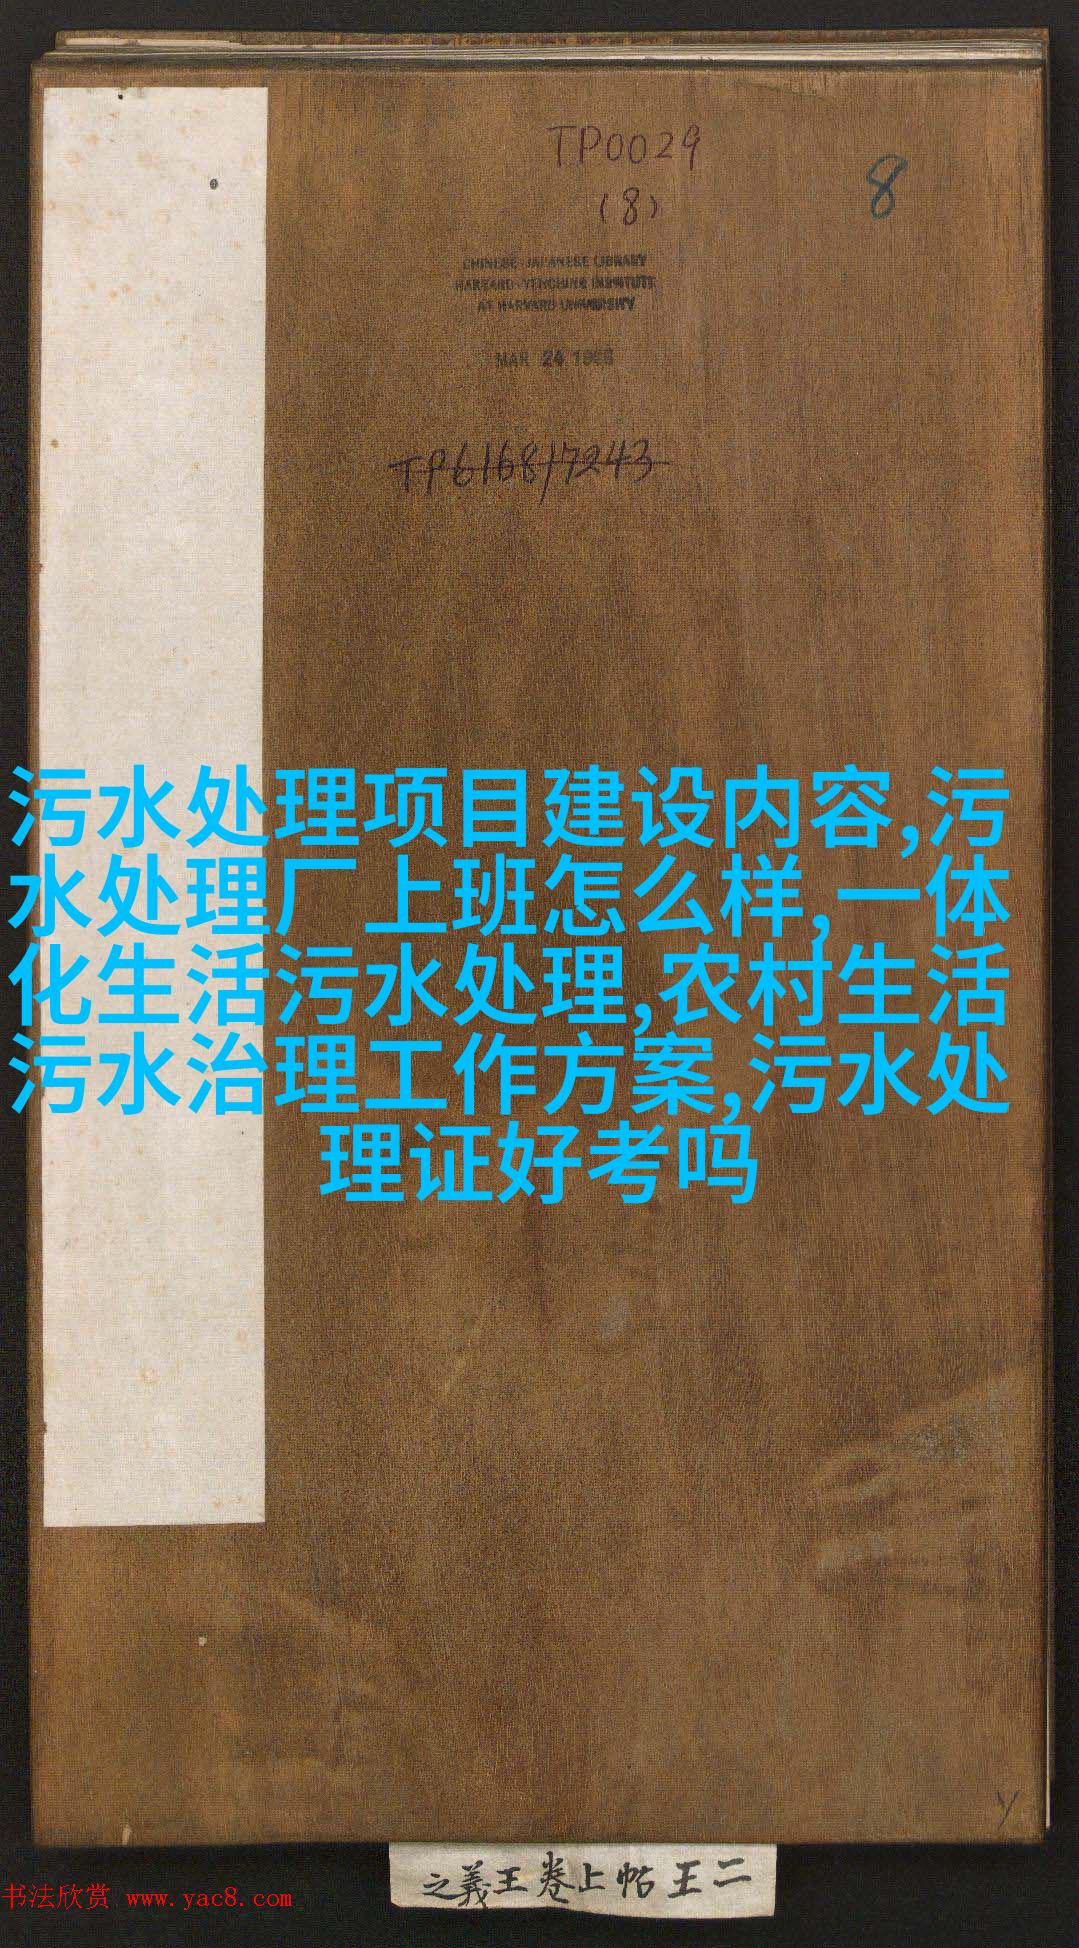 TP0029
(8)
8
CHINESE-JAPANESE LIBRARY
HARVARD-YENCHING INSTITUTE
AT HARVARD UNIVERSITY
MAR 24 19
TP6168/7243
污水处理项目建设内容,污
水处理厂上班怎么样,一体
化生活污水处理,农村生活
污水治理工作方案,污水处
理证好考吗
二王帖上卷王羲之
书法欣赏 www.yac8.com